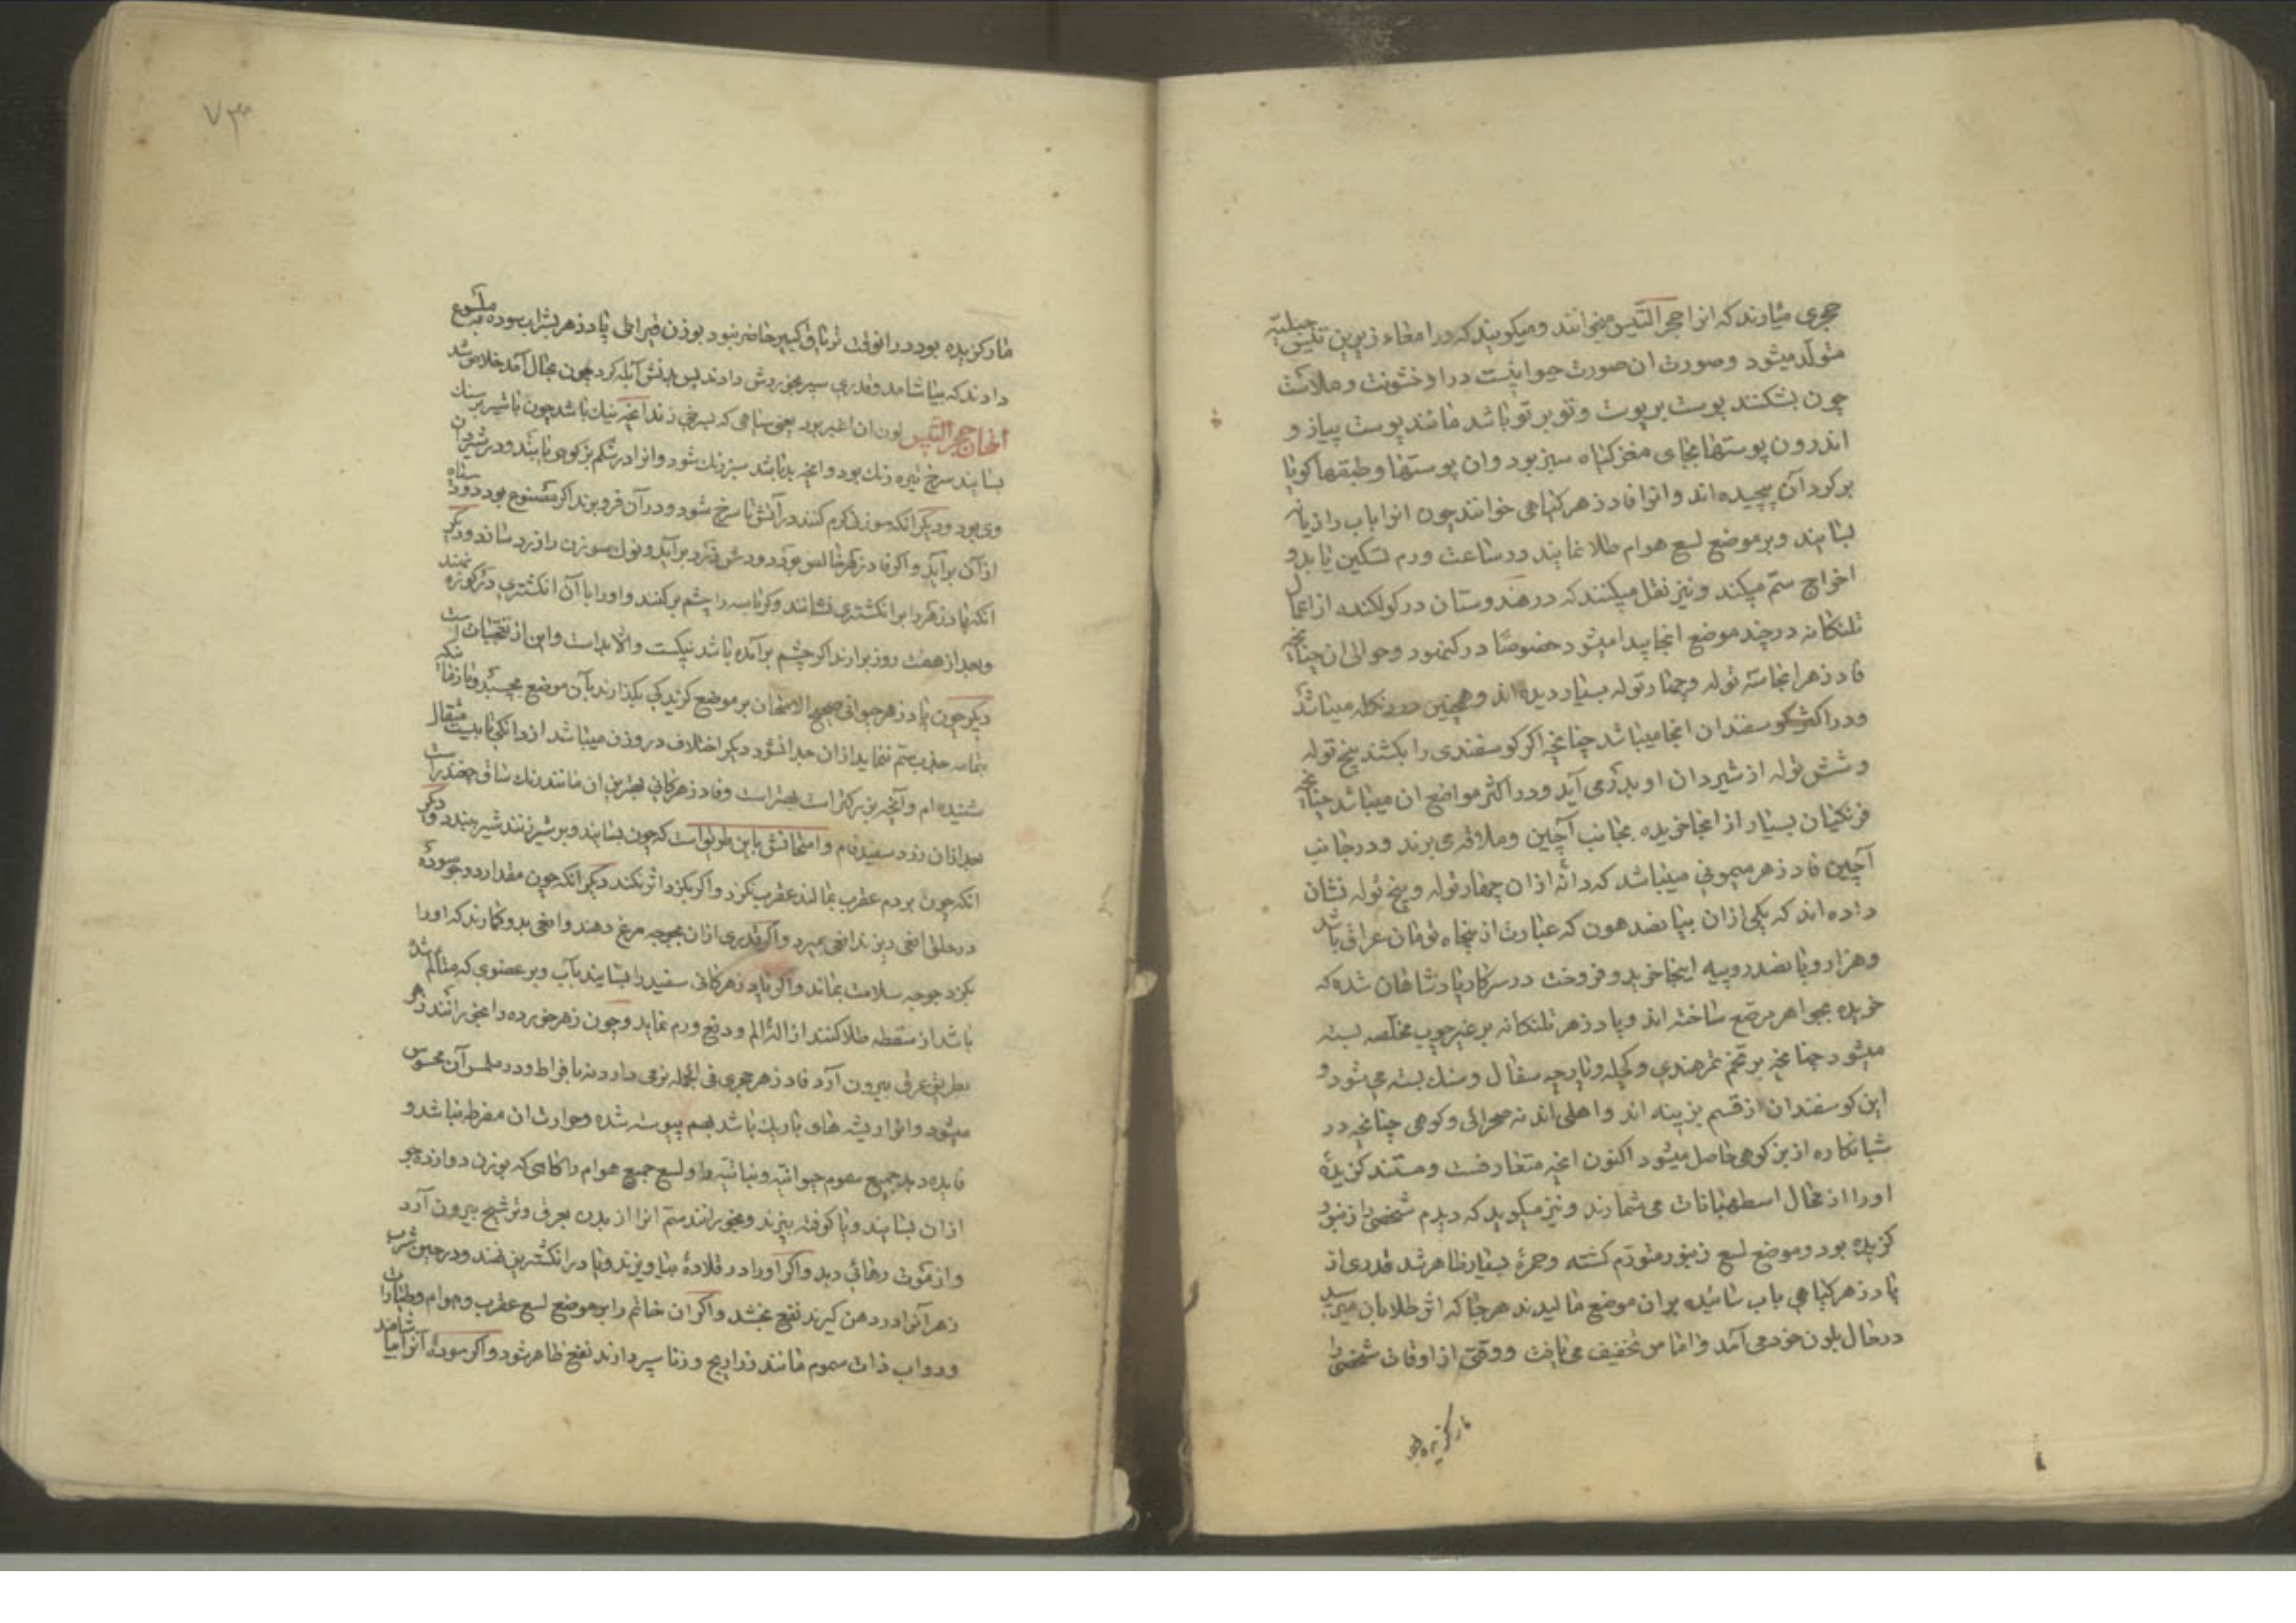 حجری میارند که انرا حجر التیس میخوانند و میکویند که در امعاء زیرین تیس جبلیه
متولد میشود و صورت ان صورت حیوانیست در او خشونت و ملاست
چون بشکنند پوست بر پوست و تو بر تو باشد مانند پوست پیاز و
اندرون پوستها بجای مغز کیاه سبز بود و ان پوستها و طبقها کویا
بر کرد آن پیچیده اند و انرا فادزهر کیاهی خوانند چون انرا باب رازیانه
بسایند و بر موضع لسع هوام طلا نمایند در ساعت ورم تسکین یابد و
اخراج ستم میکند و نیز نقل میکنند که در هندوستان در کولکنده از اعمال
تلنکانه در چند موضع انجا پیدا میشود خصوصا در و حوالی ان چنانچه
فادزهر انجا سه توله و چهار توله بسیار دیده اند و همچنین میباشد
و در اکثر کوسفندان انجا میباشد چنانچه اکر کوسفندی را بکشند پنج توله
و شش توله از شیردان او بدر می آید و در اکثر مواضع ان میباشد چنانچه
فرنکیان بسیار از انجا خریده بجانب آچین و ملاقه می برند و در جانب
آچین فادزهر میمونی میباشد که دانه از ان چهار توله و پنج توله نشان
داده اند که یکی از ان بپانصد هون که عبارت از پنجاه تومان عراق باشد
و هزار و پانصد روپیه اینجا خرید و فروخت در سرکار پادشاهان شده که
خریده بجواهر مرصع ساخته اند و پادزهر تلنکانه بر غیر چوب مخلصه بسته
میشود چنانچه بر تخم تمرهندی و کچله و پارچه سفال و سنك بسته می شود و
این کوسفندان از قسم بز پینه اند و اهلی اند نه صحرائی و کوهی چنانچه در
شبانکاره از بز کوهی حاصل میشود اکنون انچه متعارفست و مستند کزیده
او را از محال اسطهبانات می شمارند و نیز میکوید که دیدم شخصی را زنبور
کزیده بود و موضع لسع زنبور متورم کشته و حمرة بسیار ظاهر شد قدری از
پادزهر کیاهی باب سائیده بران موضع مالیدند هرجا که اثر طلا بان میرسید
در حال بلون خود می آمد و اماس تخفیف می یافت و وقتی از اوقات شخصی را
مار کزیده بود
۷۳
مار کزیده بود در انوقت تریاق کبیر حاضر نبود بوزن قیراطی پادزهر بشراب سوده ملسوع
دادند که بیاشامد و قدری سیر بخوردش دادند پس بدنش آبله کرد چون بحال آمد خلاص شد
امتحان حجر التیس لون ان اغبر بود یعنی سیاهی که بسرخی زند انچه نیك باشد چون با شیر بر سنك
بسایند سرخ تیره رنك بود و انچه بد باشد سبز رنك شود و انرا در شکم بز کوهی یابند و در شیردان
وی بود و دیکر انکه سوزنی کرم کنند در آتش تا سرخ شود و در آن فرو برند اکر مصنوع بود دود سیاه
از آن برآید و اکر فادزهر خالص بود دودش زرد برآید و نوك سوزن را زرد سازد و دیکر
انکه پادزهر را بر انکشتری نشانند و کرباسه را چشم برکنند و او را با آن انکشتری در کوزه نهند
و بعد از هفت روز برارند اکر چشم برآمده باشد نیکست و الا بد است و این از تعجبات است
دیکر چون پادزهر حیوانی صحیح الامتحان بر موضع کزیدکی بکذارند بآن موضع بچسبد و تا زمانیکه
بتمامه جذب ستم ننماید از ان جدا نشود دیکر اختلاف در وزن میباشد از دانکی تا بیست مثقال
شنیده ام و آنچه بزرکتر است بهتر است و فادزهر کانی بهترین ان مانند رنك ساق چغندر است
بعد از ان زرد سفید فام و امتحانش باین طریق است که چون بسایند و بر شیر زنند شیر ببندد و دیکر
انکه چون بر دم عقرب بمالند عقرب نکزد و اکر بکزد اثر نکند دیکر انکه چون مقدار دو جو سوده
در حلق افعی ریزند افعی بمیرد و اکر قدری از ان بجوجه مرغ دهند و افعی بدو کمارند که او را
بکزد جوجه سلامت بماند و اکر پادزهر کانی سفید را بسایند بآب و بر عضوی که متألم شده
باشد از سقطه طلا کنند ازالۀ الم و دفع ورم نماید و چون زهر خورده را بخورانند زهر
بطریق عرق بیرون آرد فادزهر حجری فی الجمله نرمی دارد نه بافراط و در ملمس آن محسوس
میشود و انرا ریشه های باریك باشد بهم پیوسته شده و حرارت ان مفرط نباشد و
فایده دهد جمیع سموم حیوانیه و نباتیه را و لسع جمیع هوام را کاهی که بوزن دوازده جو
از ان بسایند و یا کوفته بپزند و بخورانند ستم انرا از بدن بعرق و ترشیح بیرون آرد
و از موت رهائی دهد و اکر او را در قلادۀ بیاویزند و یا در انکشترین نهند و در حین شرب
زهر آنرا در دهن کیرند نفع بخشد و اکر ان خاتم را بر موضع لسع عقرب و هوام و طیارات
و دواب ذات سموم مانند ذراریح و زنابیر دارند نفع ظاهر شود و اکر سودۀ آنرا بیاشامند